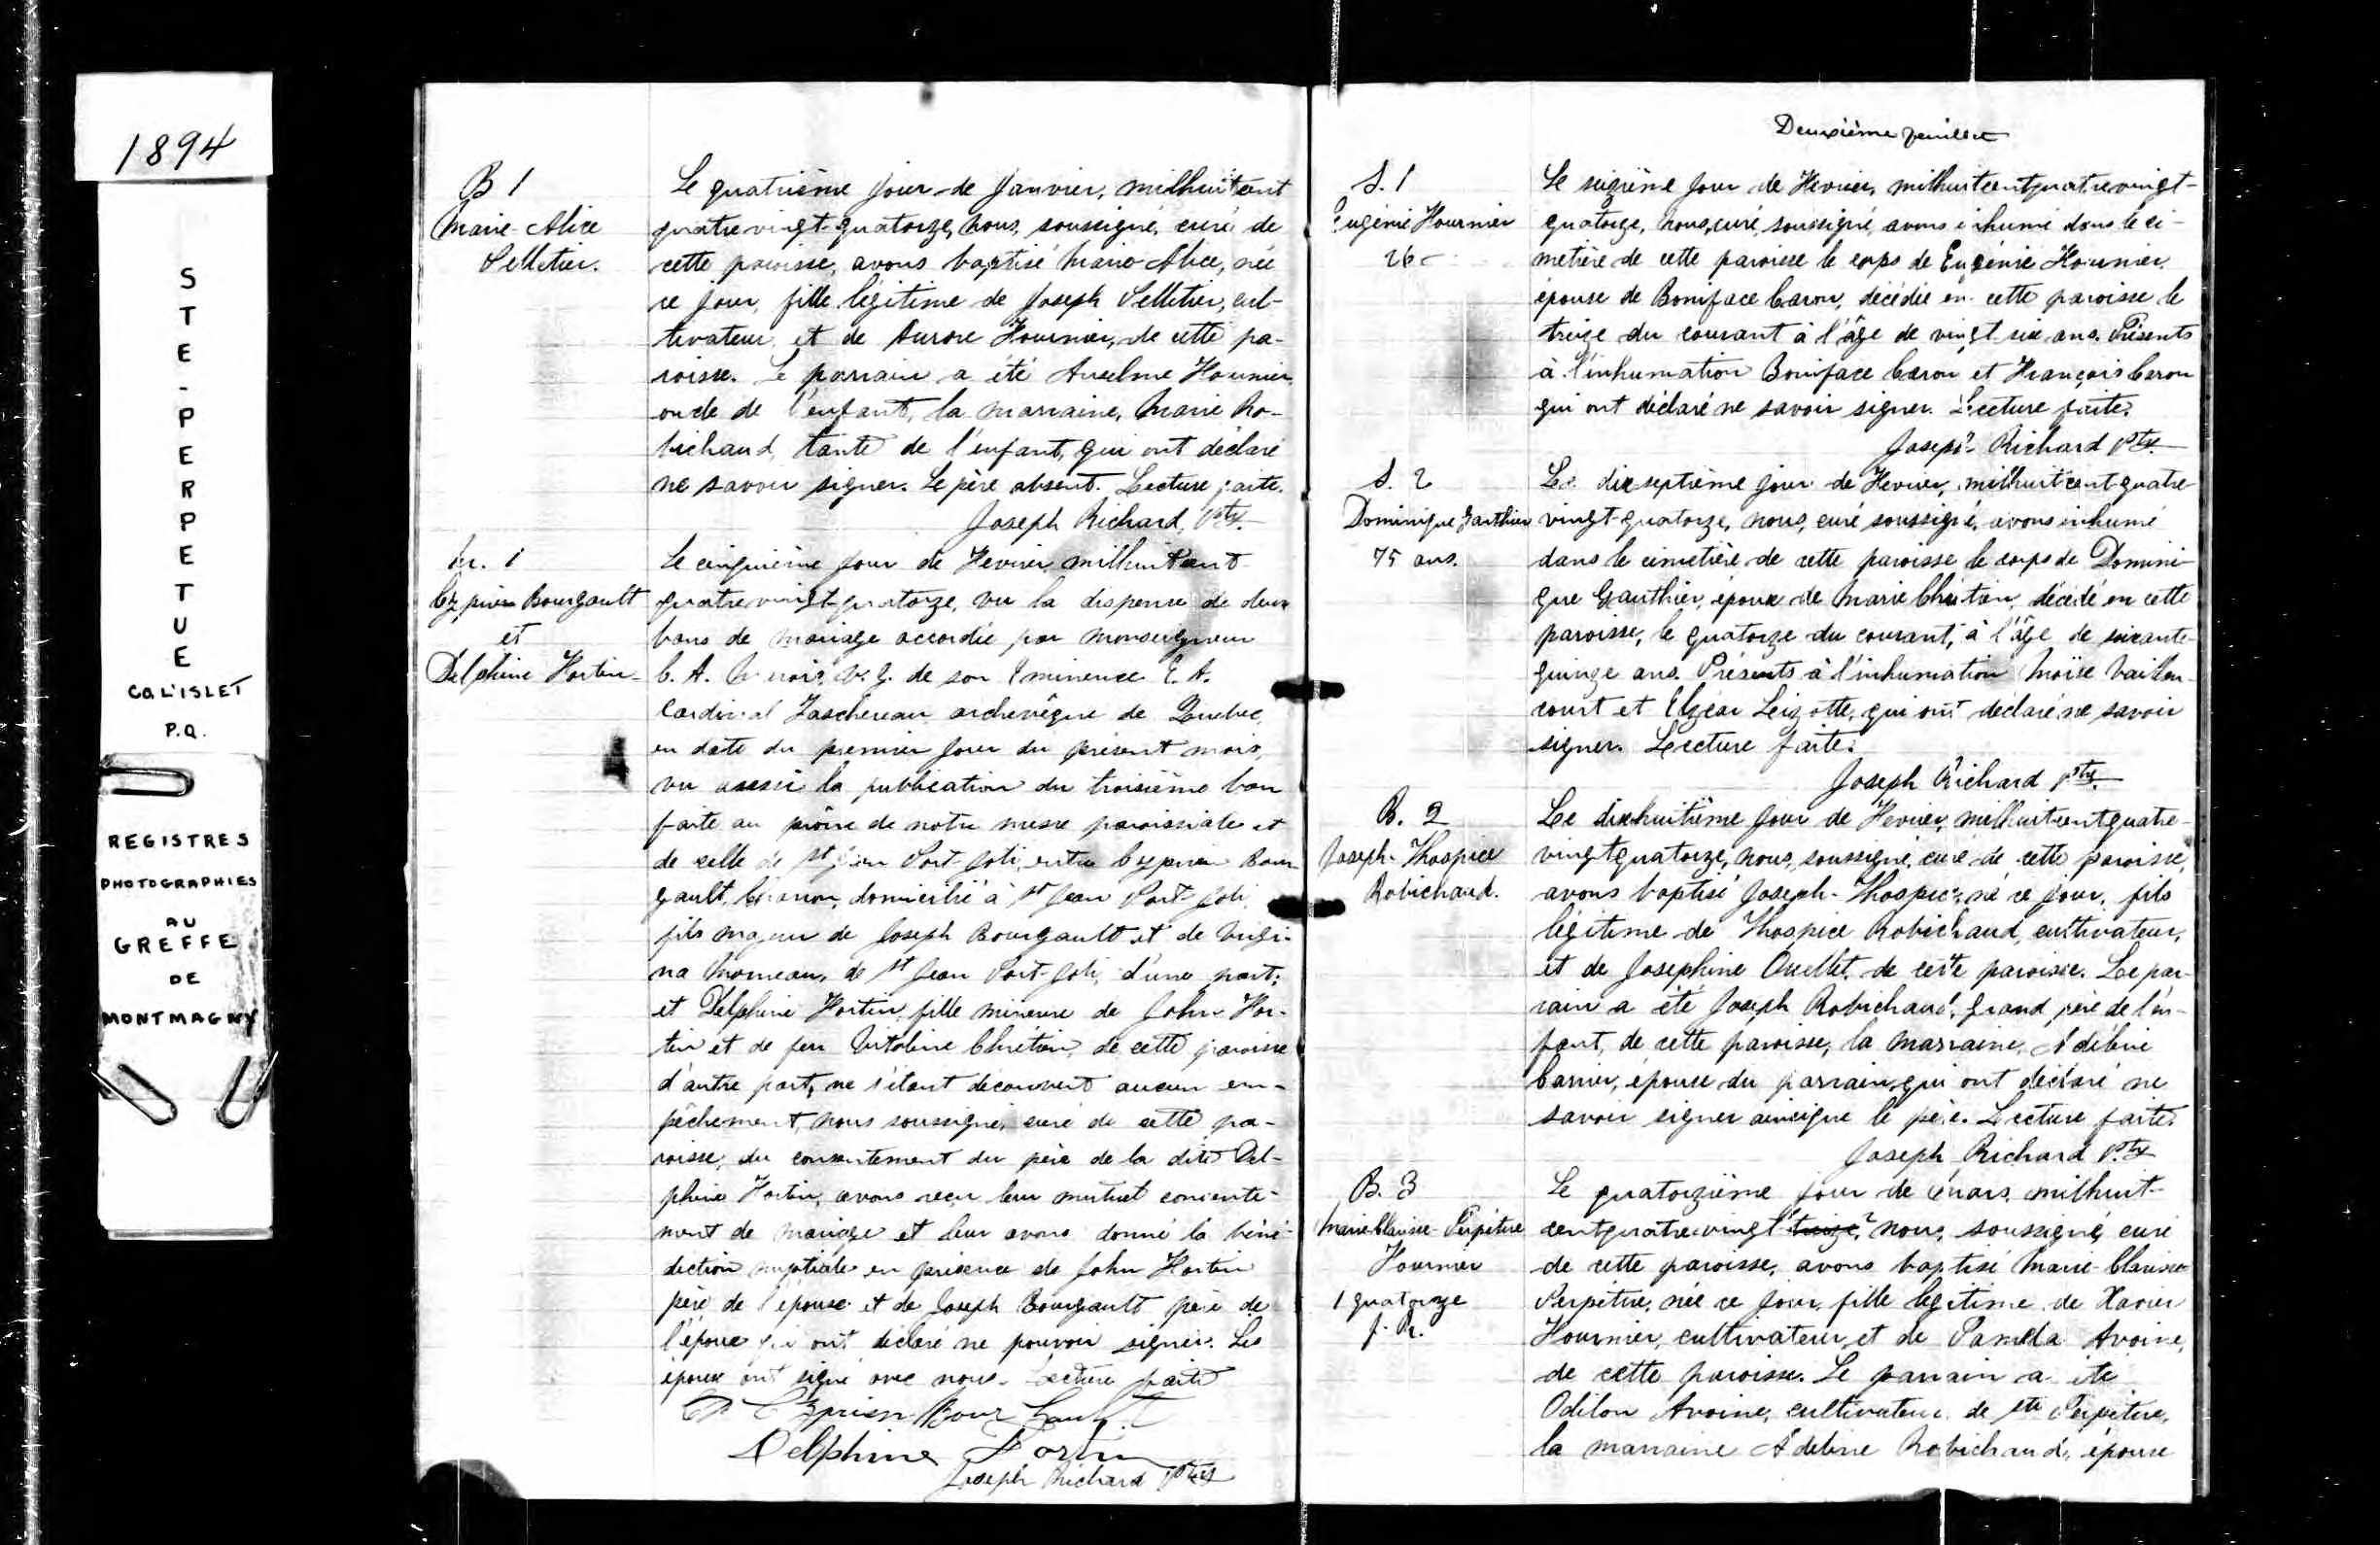 1894
STE-PERPETUE
CO. L'ISLET
P.Q.
REGISTRES
PHOTOGRAPHIES
AU
GREFFE
DE
MONTMAGNY
B 1
Marie-Alice
Pelletier.
Le quatrième jour de Janvier, milhuitcent
quatrevingt-quatorze, nous, soussigné, curé de
cette paroisse, avons baptisé Marie-Alice, née
ce jour, fille légitime de Joseph Pelletier, cul-
tivateur, et de Aurore Fournier, de cette pa-
roisse. Le parrain a été Anselme Fournier,
oncle de l'enfant, la marraine, Marie Ro-
bichaud, tante de l'enfant, qui ont déclaré
ne savoir signer. Le père absent. Lecture faite.
Joseph Richard, Ptre.
M. 1
Cyprien Bourgault
et
Delphine Fortin
Le cinquième jour de Fevrier, milhuitcent
quatrevingt-quatorze, vu la dispense de deux
bans de mariage accordée par Monseigneur
C. A. V. G. de son Eminence E. A.
Cardinal Taschereau archevêque de Quebec,
en date du premier jour du présent mois,
vu aussi la publication du troisième ban
faite au prône de notre messe paroissiale et
de celle de St Jean Port-Joli, entre Cyprien Bour-
gault, domicilié à St Jean Port-Joli,
fils majeur de Joseph Bourgault et de Virgi-
na Morneau, de St Jean Port-Joli, d'une part;
et Delphine Fortin, fille mineure de John For-
tin et de feu Vitaline Chrétien, de cette paroisse
d'autre part, ne s'étant découvert aucun em-
pêchement, nous soussigné, curé de cette pa-
roisse, du consentement du père de la dite Del-
phine Fortin, avons reçu leur mutuel consente-
ment de mariage et leur avons donné la béné-
diction nuptiale en présence de John Fortin
père de l'épouse et de Joseph Bourgault père de
l'époux qui ont déclaré ne pouvoir signer. Les
époux ont signé avec nous. Lecture faite
Cyprien Bourgault
Delphine Fortin
Joseph Richard Ptre
Deuxième feuillet
S. 1
Eugénie Fournier
26
Le seizième jour de Fevrier, milhuitcentquatrevingt-
quatorze, nous, curé, soussigné, avons inhumé dans le ci-
metière de cette paroisse le corps de Eugénie Fournier,
épouse de Boniface Caron, décédée en cette paroisse le
treize du courant à l'âge de vingt-six ans. Présents
à l'inhumation Boniface Caron et François Caron
qui ont déclaré ne savoir signer. Lecture faite.
Joseph Richard Ptre.
S. 2
Dominique Gauthier
75 ans.
Le dixseptième jour de Fevrier, milhuitcentquatre
vingt-quatorze, nous, curé soussigné, avons inhumé
dans le cimetière de cette paroisse le corps de Domini-
que Gauthier, époux de Marie Chrétien, décédé en cette
paroisse, le quatorze du courant, à l'âge de soixante-
quinze ans. Présents à l'inhumation Moïse Vaillan-
court et Elzéar Leizotte, qui ont déclaré ne savoir
signer. Lecture faite.
Joseph Richard Ptre.
B. 2
Joseph-Thospice
Robichaud.
Le dixhuitième jour de Fevrier, milhuitcentquatre-
vingtquatorze, nous, soussigné, curé de cette paroisse,
avons baptisé Joseph-Thospice, né ce jour, fils
légitime de Thospice Robichaud, cultivateur,
et de Josephine Ouellet, de cette paroisse. Le par-
rain a été Joseph Robichaud, grand père de l'en-
fant, de cette paroisse, la marraine, Adéline
Carrier, épouse du parrain, qui ont déclaré ne
savoir signer ainsique le père. Lecture faite.
Joseph Richard Ptre
B. 3
Marie Clarisse-Perpétue
Fournier
1 quatorze
J. R.
Le quatorzième jour de Mars, milhuit-
centquatrevingt treize, nous, soussigné, curé
de cette paroisse, avons baptisé Marie-Clarisse
Perpétue, née ce jour, fille légitime de Xavier
Fournier, cultivateur, et de Pamela Avoine,
de cette paroisse. Le parrain a été
Odilon Avoine, cultivateur, de Ste Perpétue,
la marraine Adeline Robichaud, épouse